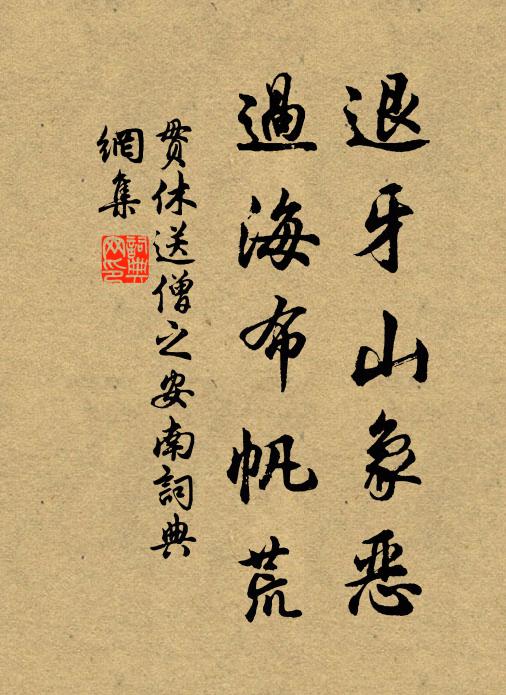 退牙山象恶
過海布帆荒
贯休送僧之安南詞典
網集
詞典
网印